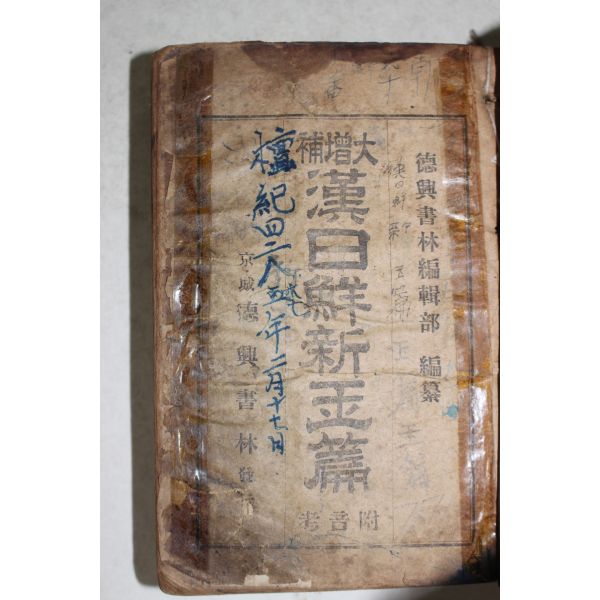 德興書林編輯部 編纂
大增補
漢日鮮新玉篇
附音考
檀紀四二八五年二月十七日
京城 德興書林 發行